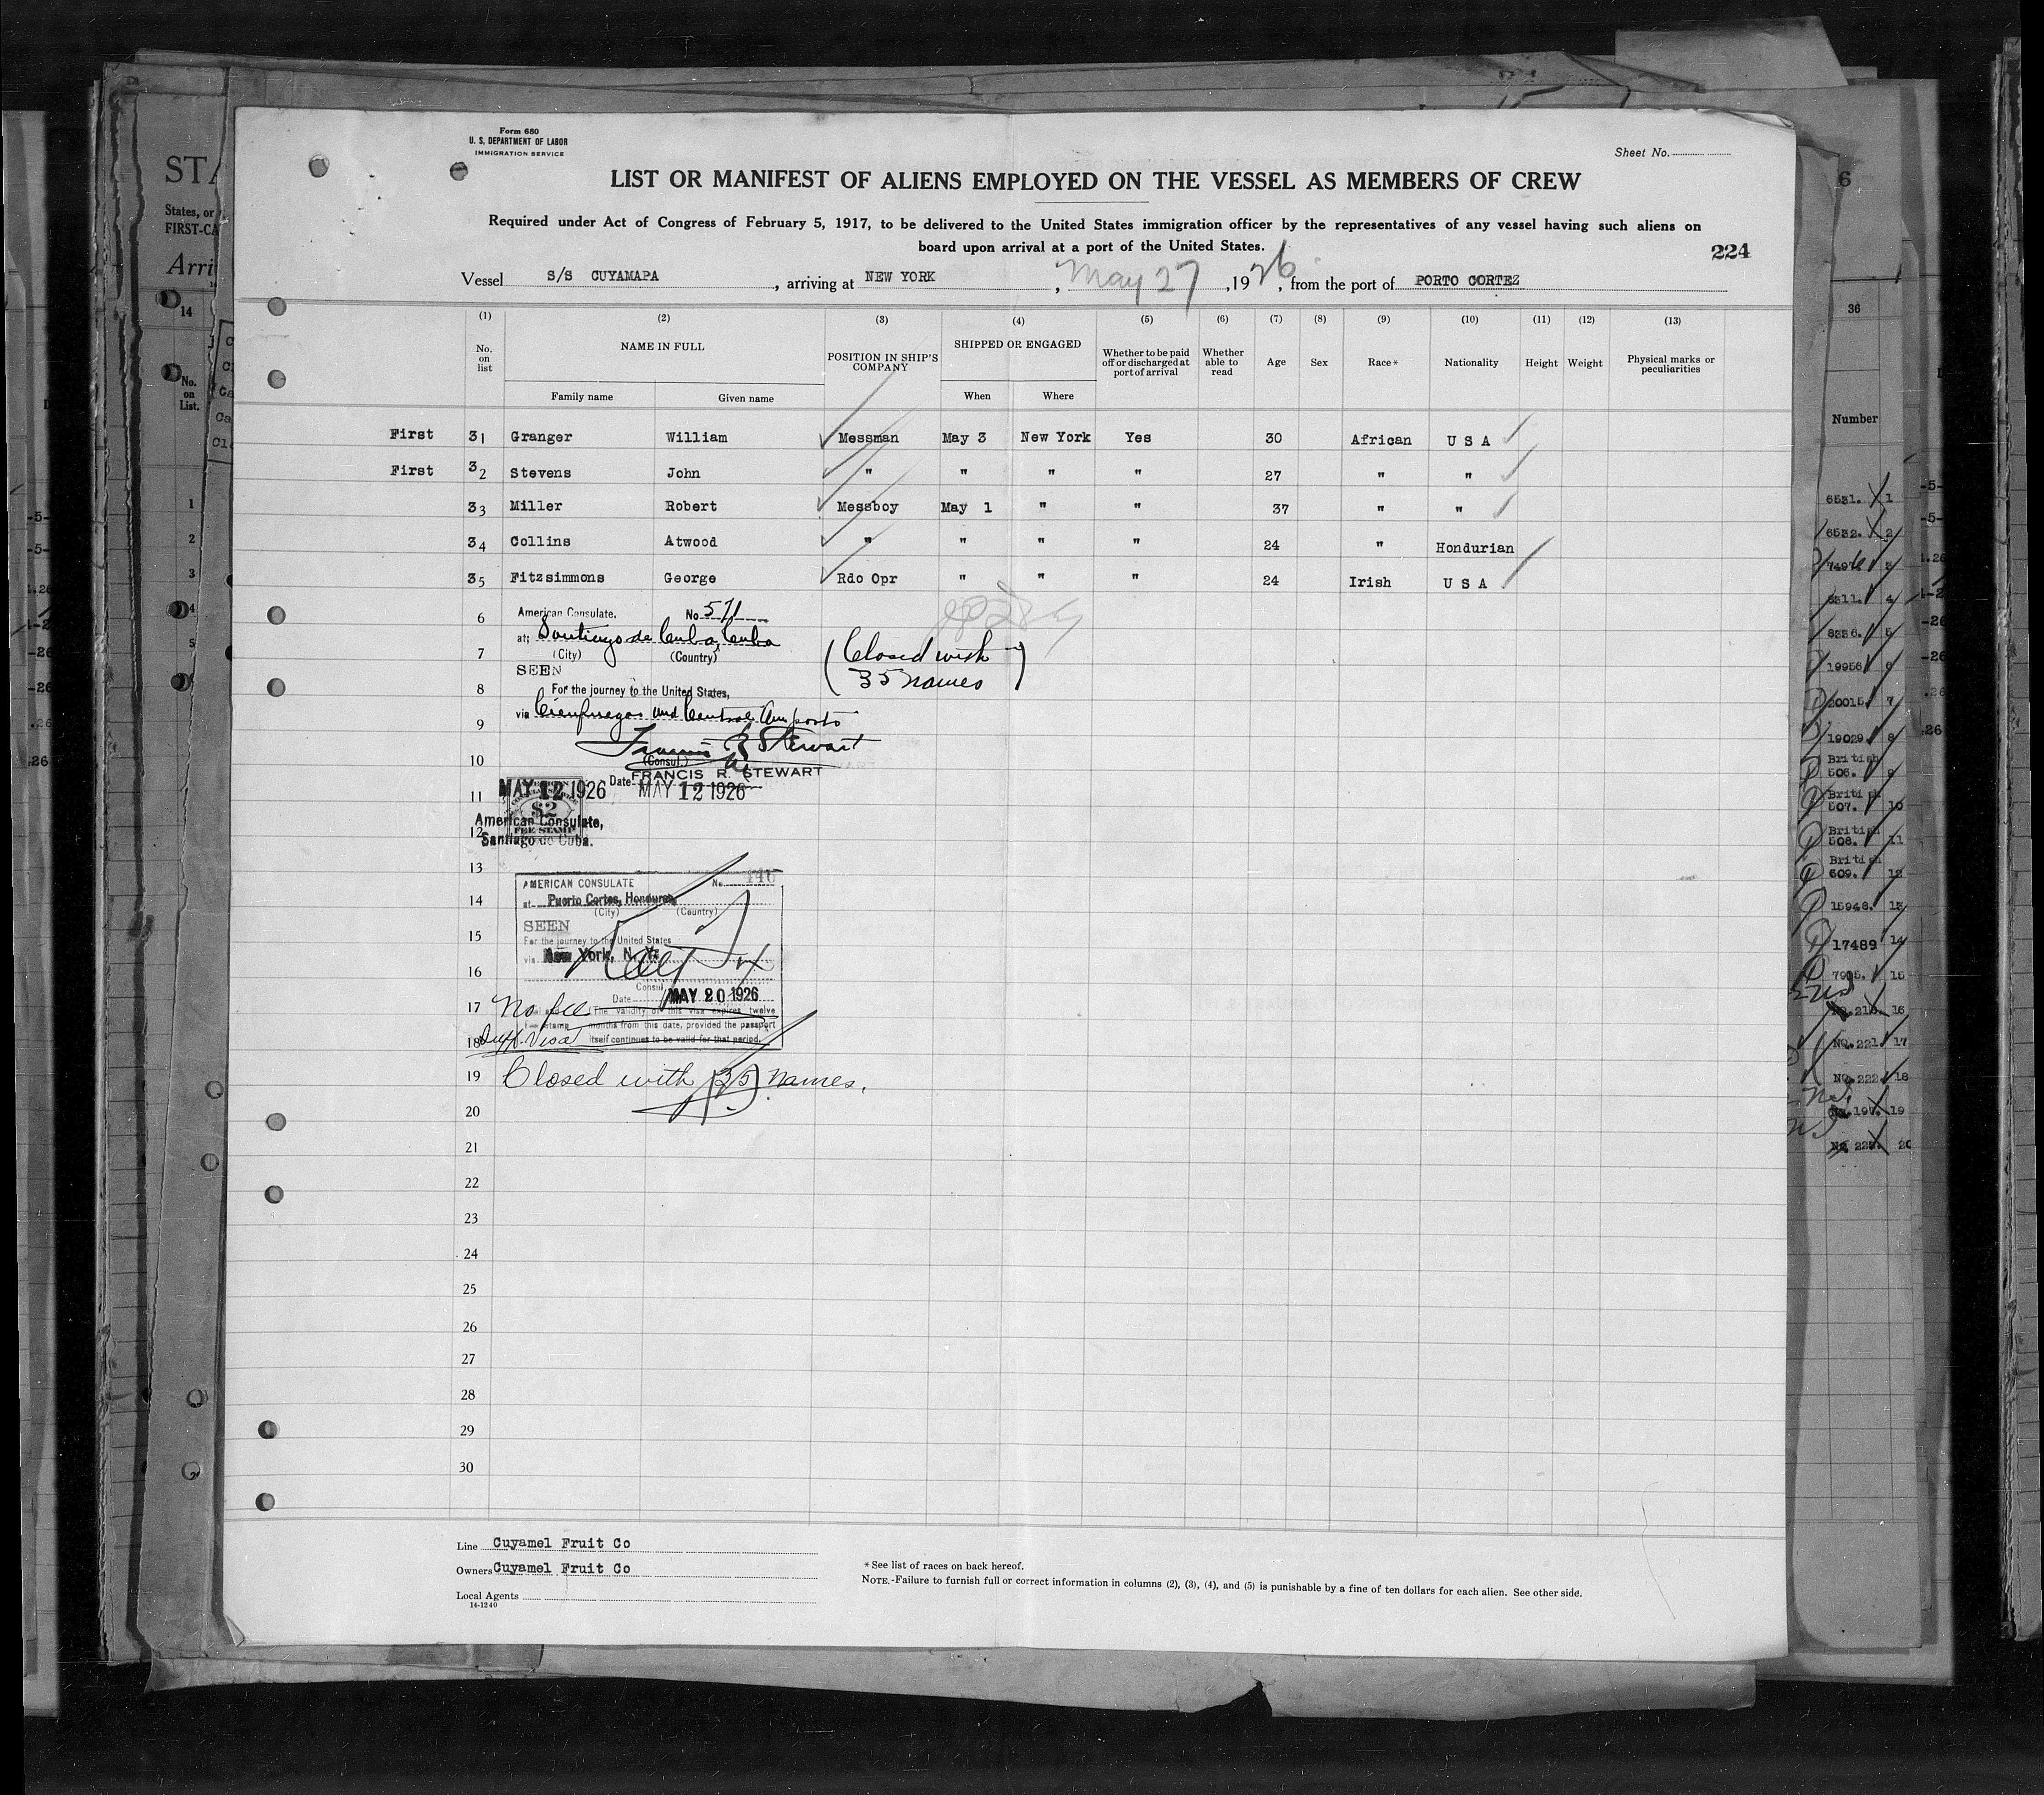 Form 680
U. S. DEPARTMENT OF LABOR
IMMIGRATION SERVICE
Sheet No.
LIST OR MANIFEST OF ALIENS EMPLOYED ON THE VESSEL AS MEMBERS OF CREW
Required under Act of Congress of February 5, 1917, to be delivered to the United States immigration officer by the representatives of any vessel having such aliens on
board upon arrival at a port of the United States.
224
Vessel S/S CUYAMAPA, arriving at NEW YORK, May 27, 1926, from the port of PORTO CORTEZ
(1) (2) (3) (4) (5) (6) (7) (8) (9) (10) (11) (12) (13)
No. on list NAME IN FULL POSITION IN SHIP'S COMPANY SHIPPED OR ENGAGED Whether to be paid off or discharged at port of arrival Whether able to read Age Sex Race* Nationality Height Weight Physical marks or peculiarities
Family name Given name When Where
First 31 Granger William Messman May 3 New York Yes 30 African U S A
First 32 Stevens John " " " " 27 " "
33 Miller Robert Messboy May 1 " " 37 " "
34 Collins Atwood " " " " 24 " Hondurian
35 Fitzsimmons George Rdo Opr " " " 24 Irish U S A
6 American Consulate. No 571
at; Santiago de Cuba, Cuba
7 (City) (Country)
(Closed with
35 names)
SEEN
8 For the journey to the United States,
via Cienfuegos and Central Am ports
9
Francis R Stewart
10 (Consul.)
FRANCIS R. STEWART
Date MAY 12 1926
11 MAY 12 1926
$2
FEE STAMP
12 American Consulate,
Santiago de Cuba.
13
AMERICAN CONSULATE No. 446
14 at Puerto Cortes, Honduras
(City) (Country)
SEEN
15 For the journey to the United States
via New York, N. Y.
16
Consul
Date MAY 20 1926
17 No fee
The validity of this visa expires twelve
months from this date, provided the passport
18 Visa itself continues to be valid for that period.
19 Closed with (35) names.
20
21
22
23
24
25
26
27
28
29
30
Line Cuyamel Fruit Co
Owners Cuyamel Fruit Co
Local Agents
14-1240
*See list of races on back hereof.
NOTE.-Failure to furnish full or correct information in columns (2), (3), (4), and (5) is punishable by a fine of ten dollars for each alien. See other side.
States, or
FIRST-CA
14
No.
on
List.
1
2
3
4
5
6
36
Number
6531. 1
6532. 2
3
8311. 4
8336. 5
19956 6
20015. 7
19029. 8
British
506. 9
British
507. 10
British
508. 11
British
509. 12
15948. 13
17489 14
15
16
No. 221 17
No. 222 18
No. 197. 19